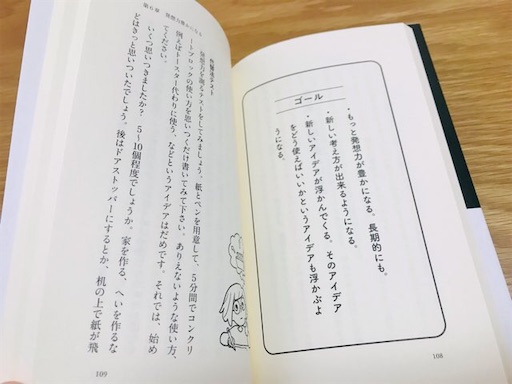 ゴール
・もっと発想力が豊かになる。長期的にも。
・新しい考え方が出来るようになる。
・新しいアイデアが浮かんでくる。そのアイデア
をどう使えばいいかというアイデアも浮かぶよ
うになる。
108
第6章 発想力豊かになる
代替法テスト
発想力を測るテストをしてみましょう。紙とペンを用意して、5分間でコンクリ
ートブロックの使い方を思いつくだけ書いてみて下さい。ありえないような使い方、
例えばトースター代わりに使う、などというアイデアはだめです。それでは、始め
てください。
いくつ思いつきましたか? 5〜10個程度でしょうか。家を作る、へいを作るな
どはきっと思いついたでしょう。後はドアストッパーにするとか、机の上で紙が飛
109